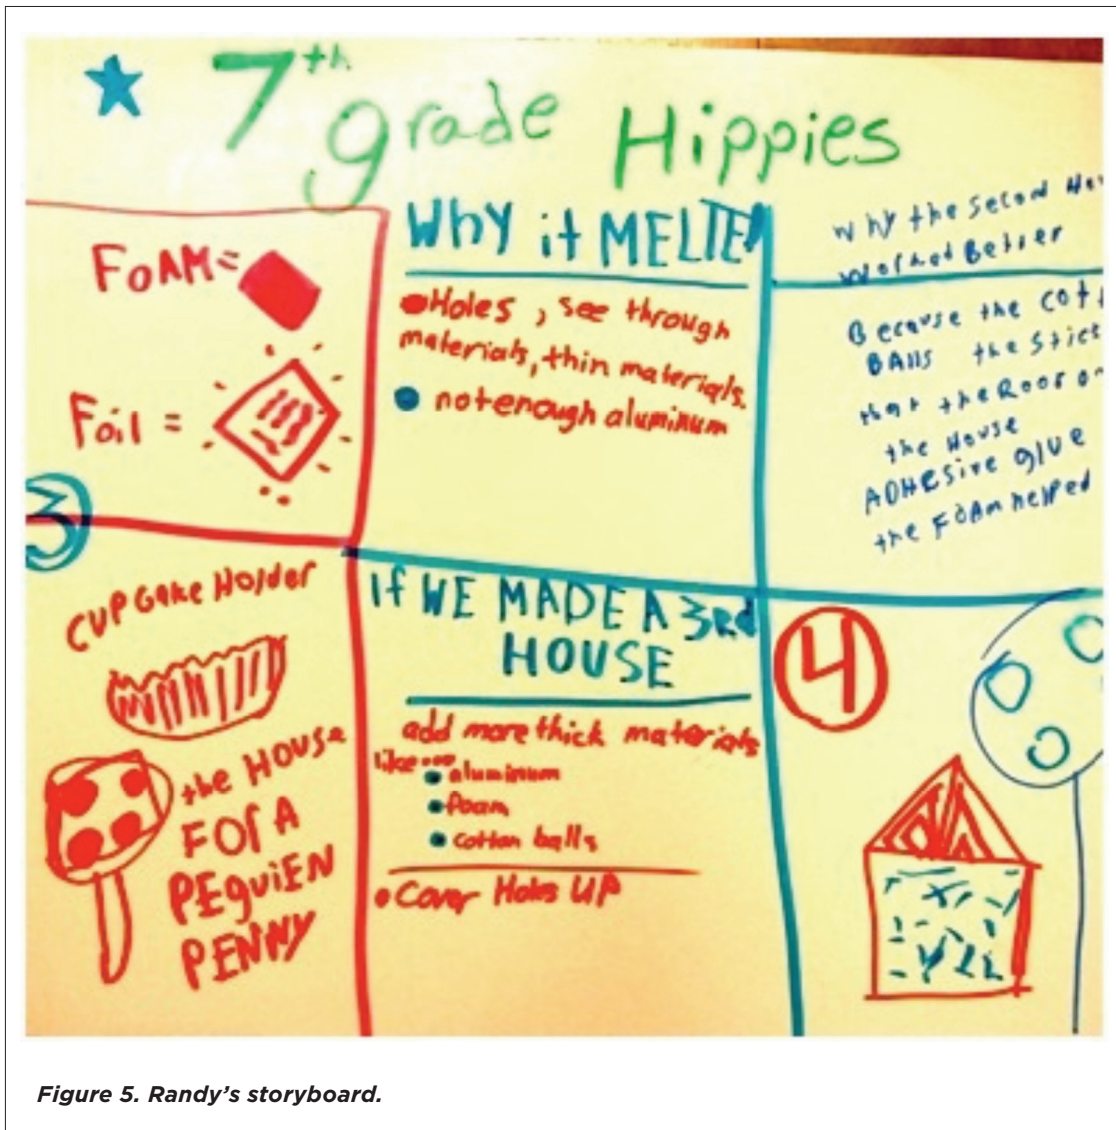 7th grade Hippies
FOAM=
Foil =
3
Why it MELTED
Holes, see through
materials, thin materials.
not enough aluminum
Why the Second
Worked Better
Because the
BAlls the
that the Roof on
the House
ADHesive glue
the FOAm helped
CUPCake Holder
the House
FOr A
PEguiEN
PENNY
If WE MADE A 3rd
HOUSE
add more thick materials
like....
aluminum
foam
cotton balls
Cover Holes UP
4
Figure 5. Randy's storyboard.